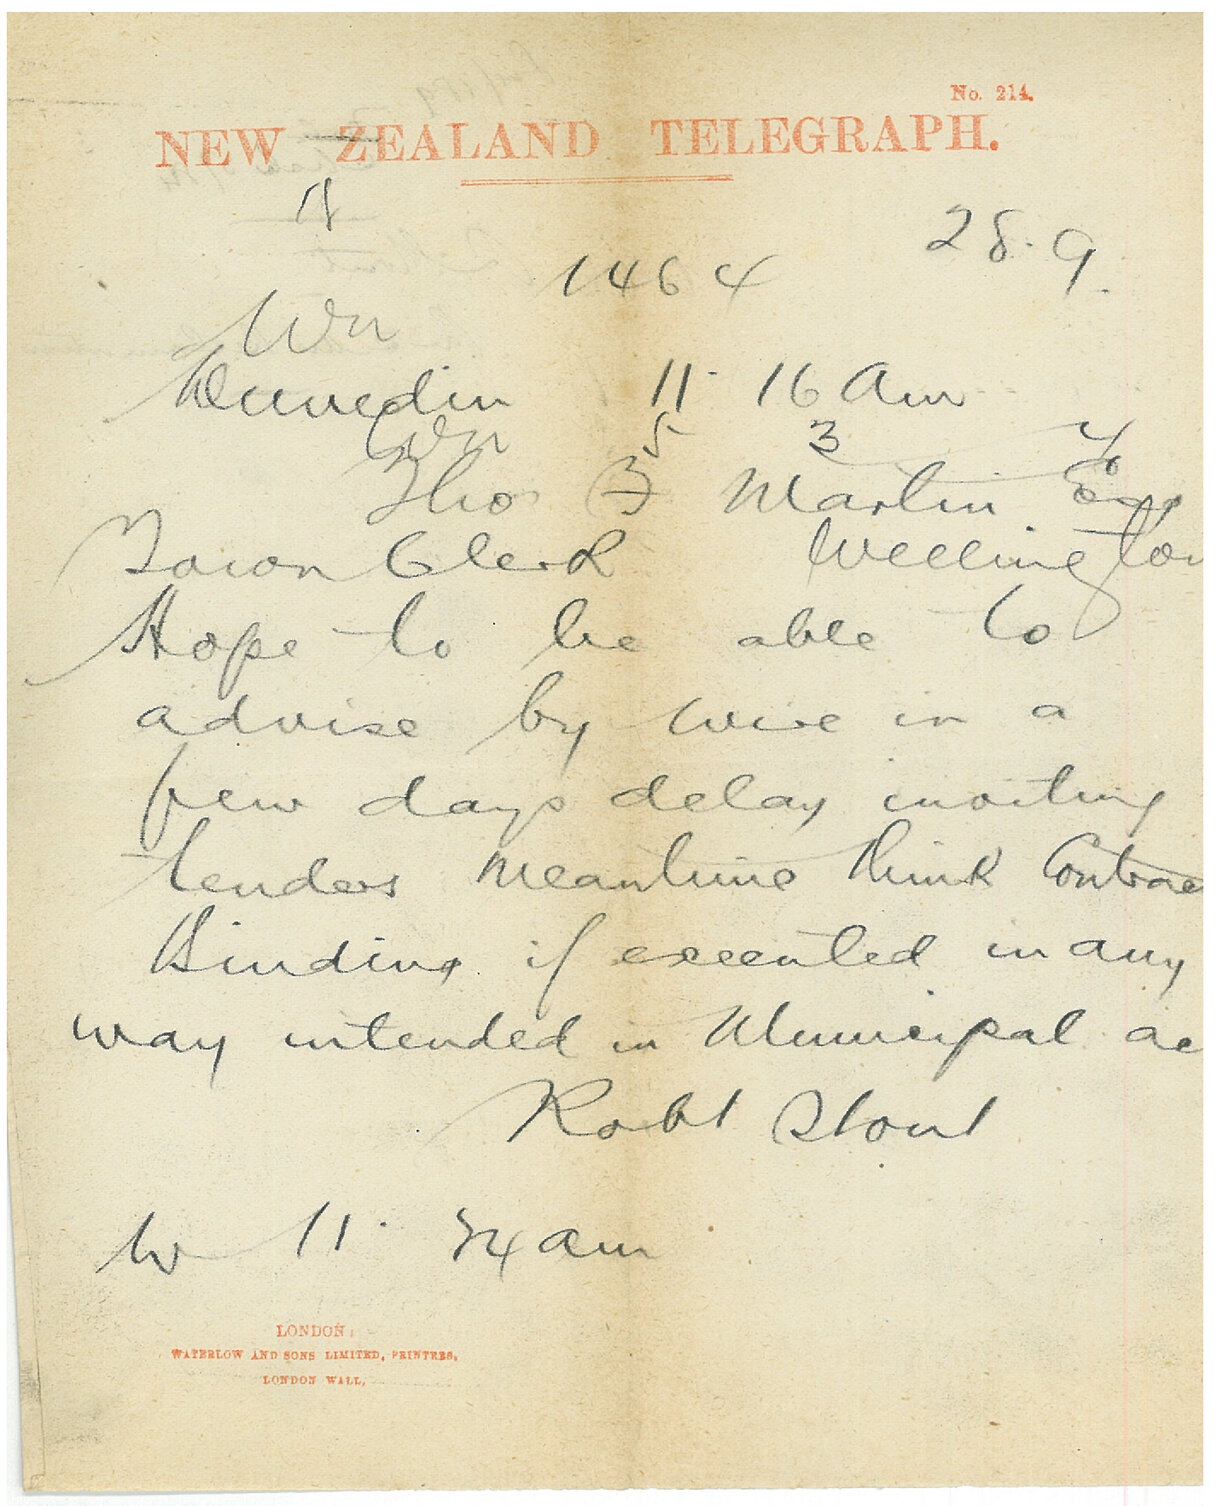 No. 214.
NEW ZEALAND TELEGRAPH.
28. 9.
1464
Wn
Dunedin 11. 16 am
Wn 5 3
Tho F Martin Esq
Town Clerk Wellington
Hope to be able to
advise by wire in a
few days delay inviting
tenders Meantime think Contrac
Binding if executed in any
way intended in Municipal ac
Robt Stout
W 11. 34 am
LONDON:
WATERLOW AND SONS LIMITED, PRINTERS,
LONDON WALL.